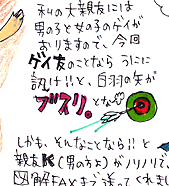 私の大親友には
男の子と女の子のゲイが
おりますので、今回
ゲイ友のことなら うにに
訊け!!と、白羽の矢が
ブスリ。となっ
しかも、そんなことなら!! と
親友K(男の子)がノリノリで、
図解FAXまで送ってくれまし